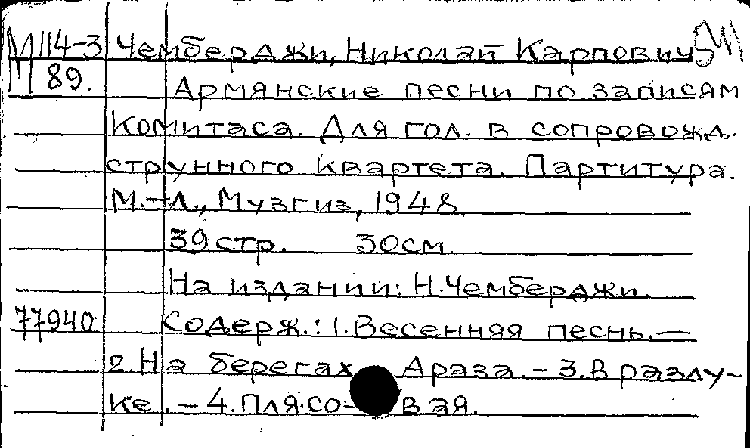 М 114-3 Чемберджи, Николай Карпович
89. Армянские песни по записям
Комитаса. Для гол. в сопровожд.
струнного квартета. Партитура.
М.-Л., Музгиз, 1948.
39 стр. 30 см.
На издании: Н. Чемберджи.
77940 Содерж.: 1. Весенняя песнь. —
2. На берегах Араза. – 3. В разлу-
ке. – 4. Плясовая.